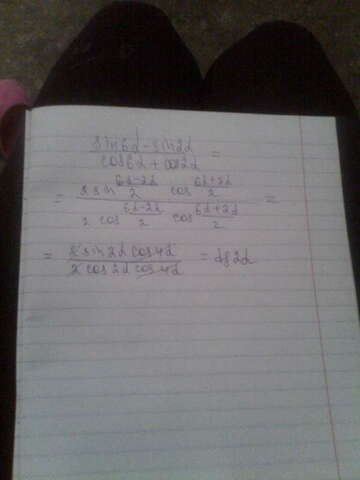 sin6α - sin2α / cos6α + cos2α =
= 2 sin (6α-2α)/2 cos (6α+2α)/2 / 2 cos (6α-2α)/2 cos (6α+2α)/2 =
= 2 sin 2α cos 4α / 2 cos 2α cos 4α = tg 2α